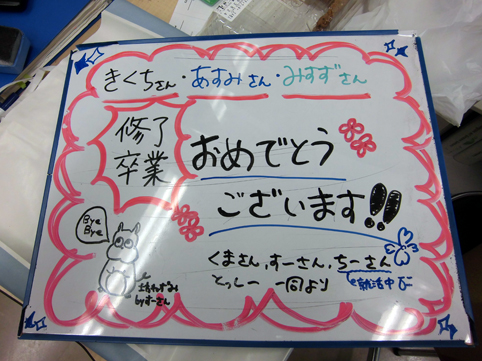 きくちさん・あすみさん・みすずさん
修了
卒業
おめでとう
ございます!!
Bye
Bye
byすーさん
くまさん,すーさん,ちーさん
とっしー 一同より
就活中